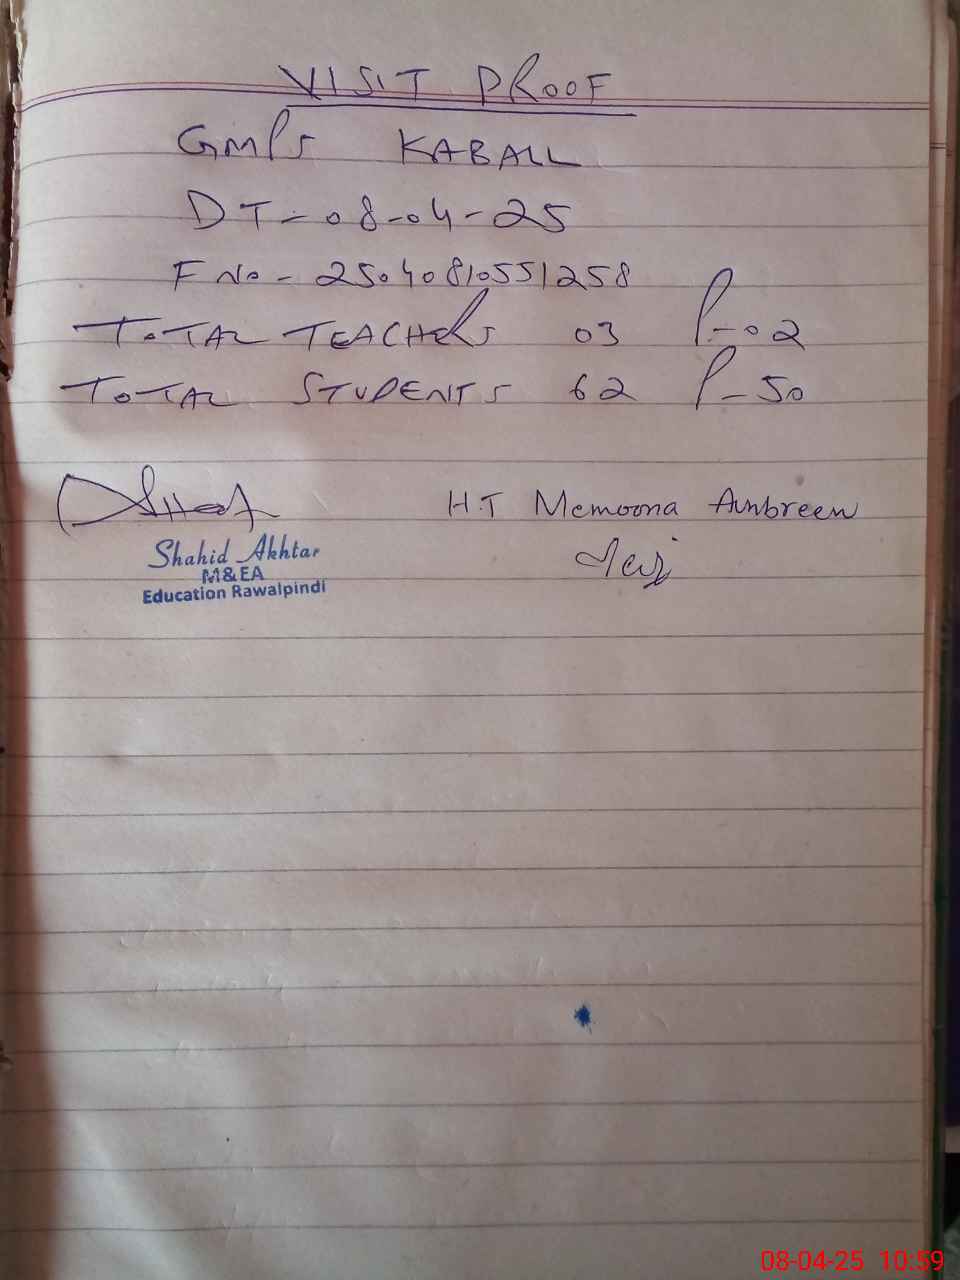 VISIT PROOF
GMPS KABALL
DT-08-04-25
F No - 25040810551258
TOTAL TEACHERS 03 P-02
TOTAL STUDENTS 62 P-50
H.T Memoona Aunbreen
Shahid Akhtar
M&EA
Education Rawalpindi
08-04-25 10:59